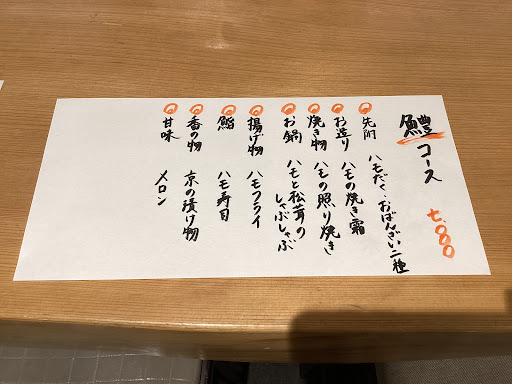 鱧コース
七、〇〇〇
先附 ハモだく、おばんざい二種
お造り ハモの焼き霜
焼き物 ハモの照り焼き
お鍋 ハモと松茸の
しゃぶしゃぶ
揚げ物 ハモフライ
鮨 ハモ寿司
香の物 京の漬け物
甘味 メロン